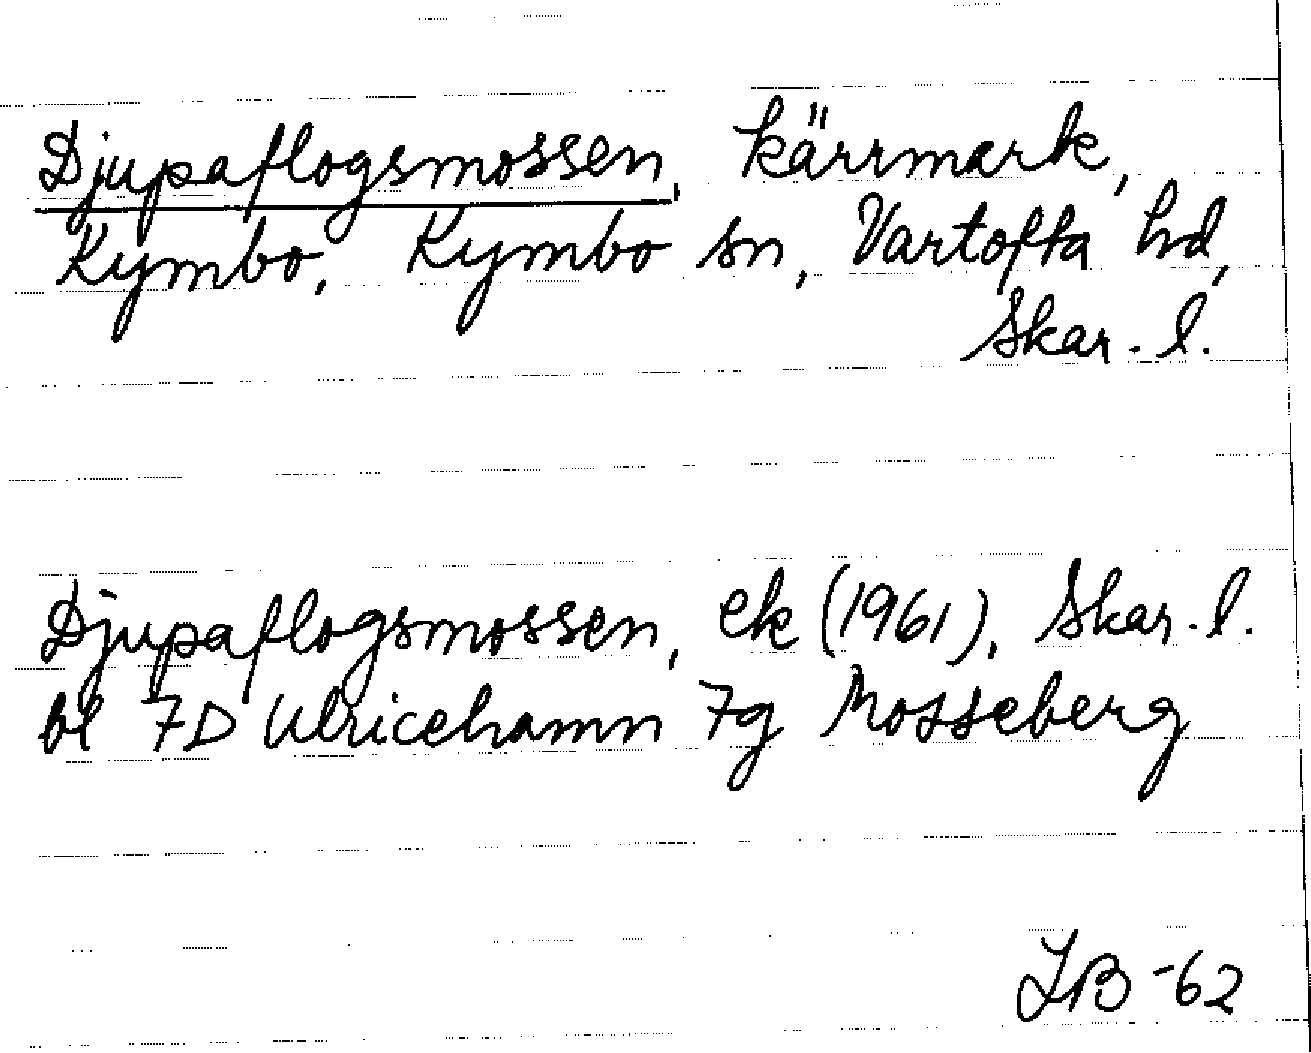 Djupaflogsmossen, kärrmark,
Kymbo, Kymbo sn, Vartofta hd,
Skar. l.
Djupaflogsmossen, ek (1961), Skar. l.
bl 7D Ulricehamn 7g Mosseberg
IB -62